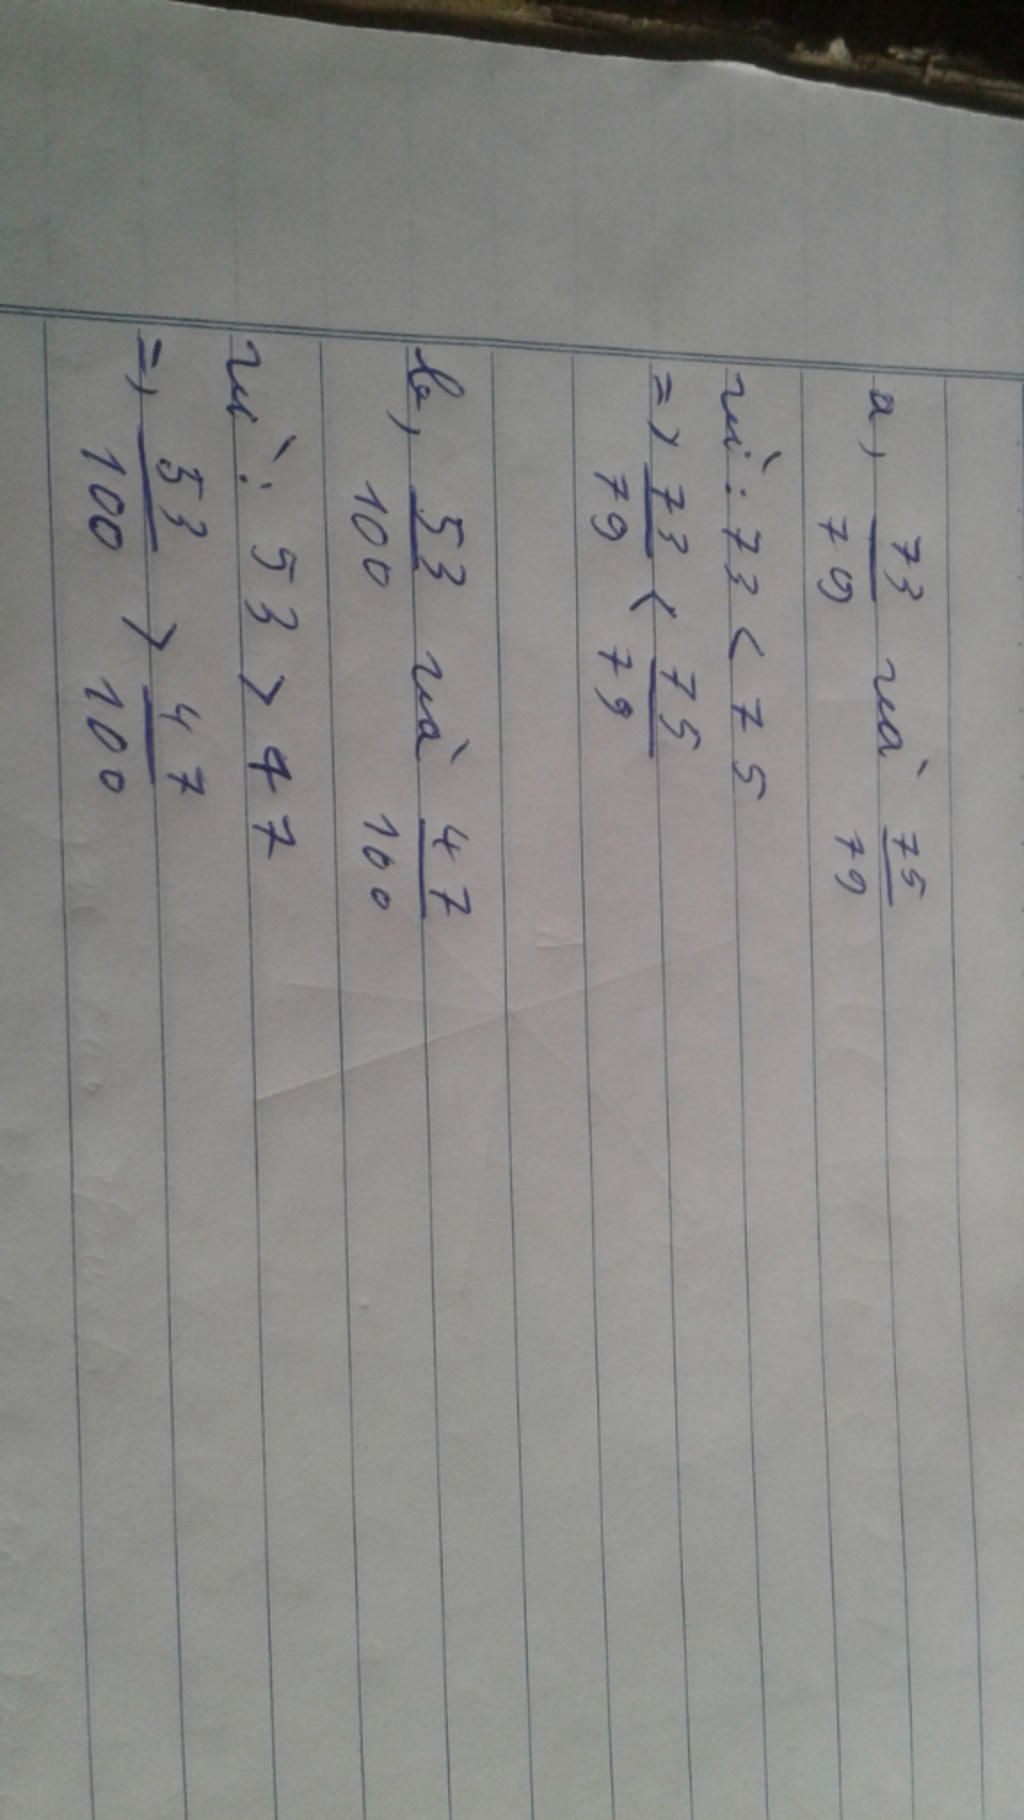 a, 73/79 và 75/79
vì: 73 < 75
=> 73/79 < 75/79
b, 53/100 và 47/100
vì: 53 > 47
=> 53/100 > 47/100